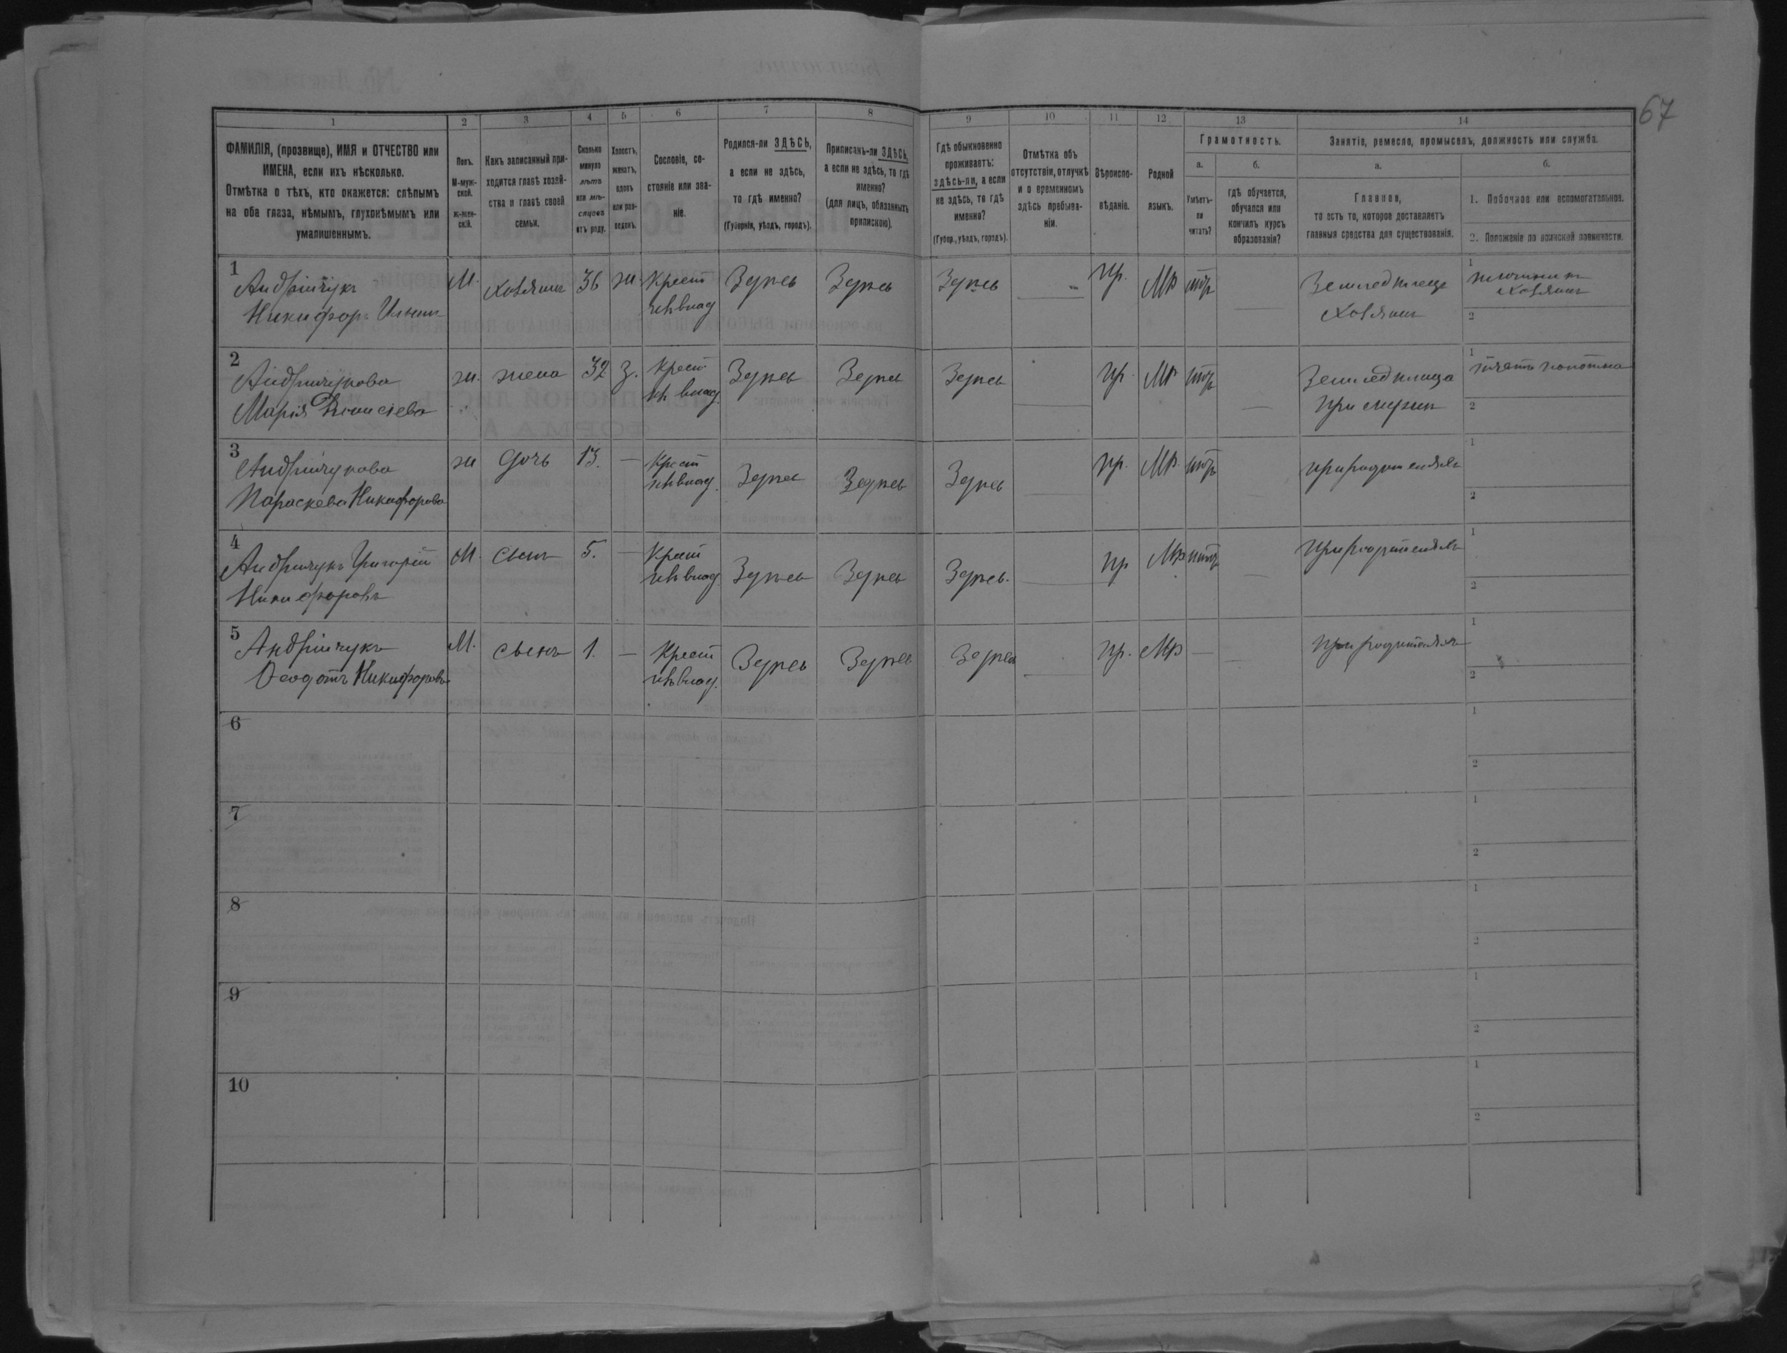 67
1 2 3 4 5 6 7 8 9 10 11 12 13 14
ФАМИЛІЯ, (прозвище), ИМЯ и ОТЧЕСТВО или
ИМЕНА, если ихъ нѣсколько.
Отмѣтка о тѣхъ, кто окажется: слѣпымъ
на оба глаза, нѣмымъ, глухонѣмымъ или
умалишеннымъ.
Полъ.
М-муж-
ской.
Ж-жен-
скій.
Какъ записанный при-
ходится главѣ хозяй-
ства и главѣ своей
семьи.
Сколько
минуло
лѣтъ
или мѣ-
сяцевъ
отъ роду.
Холостъ,
женатъ,
вдовъ
или раз-
веденъ.
Сословіе, со-
стояніе или зва-
ніе.
Родился-ли ЗДѢСЬ,
а если не здѣсь,
то гдѣ именно?
(Губернія, уѣздъ, городъ).
Приписанъ-ли ЗДѢСЬ,
а если не здѣсь, то гдѣ
именно?
(для лицъ, обязанныхъ
припискою).
Гдѣ обыкновенно
проживаетъ:
здѣсь-ли, а если
не здѣсь, то гдѣ
именно?
(Губер., уѣздъ, городъ).
Отмѣтка объ
отсутствіи, отлучкѣ
и о временномъ
здѣсь пребыва-
ніи.
Вѣроиспо-
вѣданіе.
Родной
языкъ.
Грамотность.
а.
Умѣетъ-
ли
читать?
б.
гдѣ обучается,
обучался или
кончилъ курсъ
образованія?
Занятіе, ремесло, промыселъ, должность или служба.
а.
Главное,
то есть то, которое доставляетъ
главныя средства для существованія.
б.
1. Побочное или вспомогательное.
2. Положеніе по воинской повинности.
1
Андрійчукъ
Никифоръ Ильинъ
М. хозяинъ 36 ж. Крест Здѣсь Здѣсь Здѣсь — пр. Мр нѣтъ — Земледѣлецъ
хозяинъ
1
хозяинъ
2
2
Андрійчукова
Марія
ж. жена 32 з. Крест Здѣсь Здѣсь Здѣсь пр. Мр нѣтъ — Земледѣлица
при мужѣ
1
2
3
Андрійчукова
Параскева Никифорова
ж дочь 13. — Крест Здѣсь Здѣсь Здѣсь пр. Мр нѣтъ при родителяхъ
1
2
4
Андрійчукъ Григорій
Никифоровъ
М. сынъ 5. — Крест Здѣсь Здѣсь Здѣсь. пр Мр нѣтъ при родителяхъ
1
2
5
Андрійчукъ
Ѳеодотъ Никифоровъ
М. сынъ 1. — Крест Здѣсь Здѣсь Здѣсь пр. Мр — — при родителяхъ
1
2
6
1
2
7
1
2
8
1
2
9
1
2
10
1
2